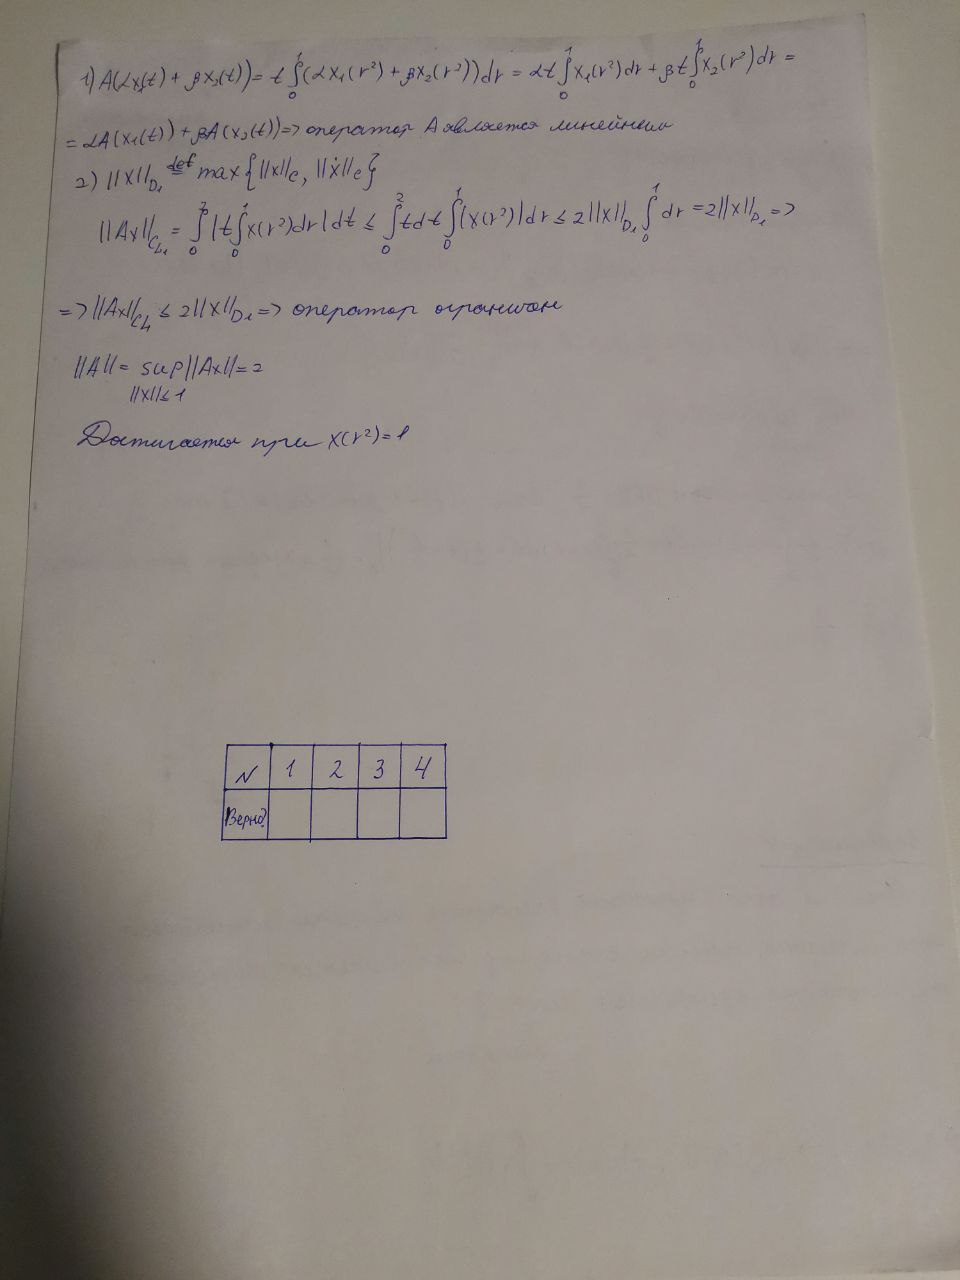 1) A(αx₁(t) + βx₂(t)) = t∫₀¹(αx₁(r²) + βx₂(r²))dr = αt∫₀¹x₁(r²)dr + βt∫₀¹x₂(r²)dr =
= αA(x₁(t)) + βA(x₂(t)) => оператор A является линейным
2) ||x||_D₁ def= max{||x||_C, ||ẋ||_C}
||Ax||_CL₁ = ∫₀²|t∫₀¹x(r²)dr|dt ≤ ∫₀²tdt∫₀¹|x(r²)|dr ≤ 2||x||_D₁∫₀¹dr = 2||x||_D₁ =>
=> ||Ax||_CL₁ ≤ 2||x||_D₁ => оператор ограничен
||A|| = sup||Ax|| = 2
||x||≤1
Достигается при x(r²) = 1
N 1 2 3 4
Верно?